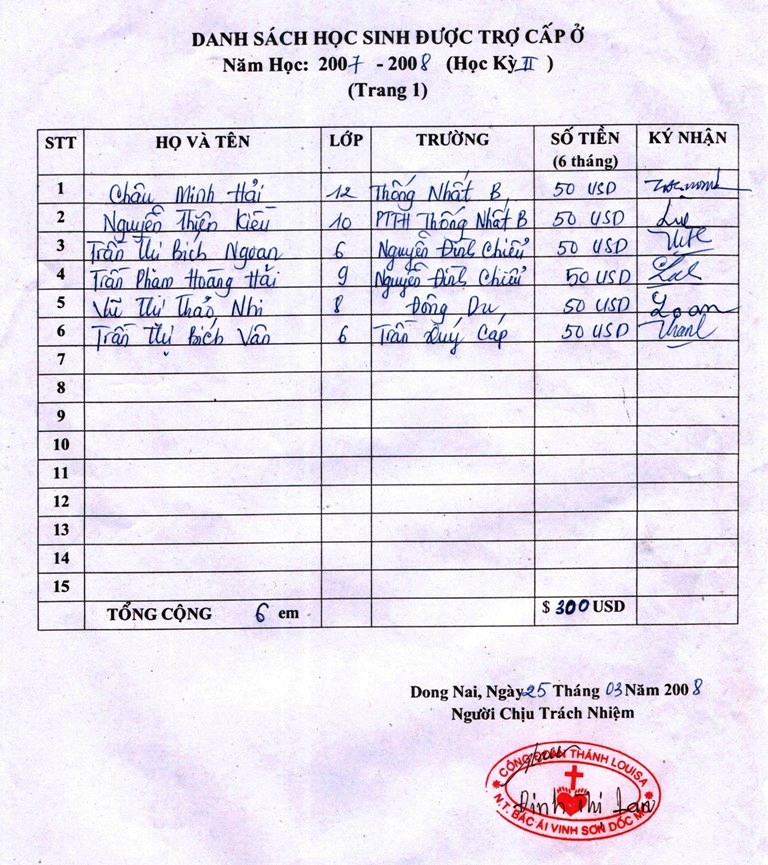 DANH SÁCH HỌC SINH ĐƯỢC TRỢ CẤP Ở
Năm Học: 2007 - 2008 (Học Kỳ II )
(Trang 1)
STT HỌ VÀ TÊN LỚP TRƯỜNG SỐ TIỀN (6 tháng) KÝ NHẬN
1 Châu Minh Hải 12 Thống Nhất B 50 USD
2 Nguyễn Thiện Kiều 10 PTTH Thống Nhất B 50 USD
3 Trần Thị Bích Ngoan 6 Nguyễn Đình Chiểu 50 USD
4 Trần Phạm Hoàng Hải 9 Nguyễn Đình Chiểu 50 USD
5 Vũ Thị Thảo Nhi 8 Đông Du 50 USD Loan
6 Trần Thị Bích Vân 6 Trần Quý Cáp 50 USD Thanh
7
8
9
10
11
12
13
14
15
TỔNG CỘNG 6 em $ 300 USD
Dong Nai, Ngày 25 Tháng 03 Năm 2008
Người Chịu Trách Nhiệm
CỘNG ĐOÀN THÁNH LOUISA
Đinh Thị Lan
N.T. BÁC ÁI VINH SƠN DỐC MƠ